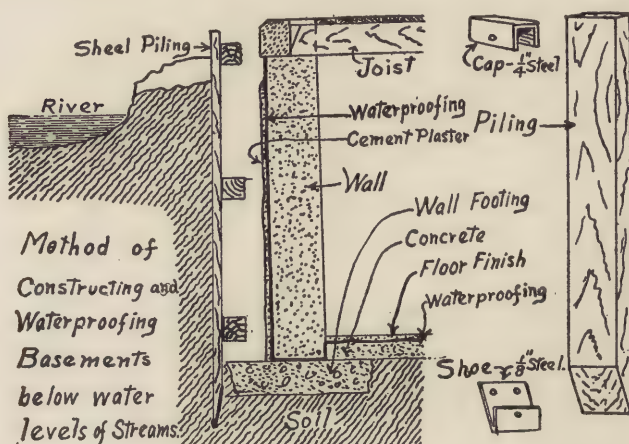 Sheel Piling
River
Joist
Cap-¼" Steel
Waterproofing
Cement Plaster
Piling
Wall
Wall Footing
Concrete
Floor Finish
Waterproofing
Method of
Constructing and
Waterproofing
Basements
below water
levels of Streams.
Shoe ⅛" Steel.
Soil